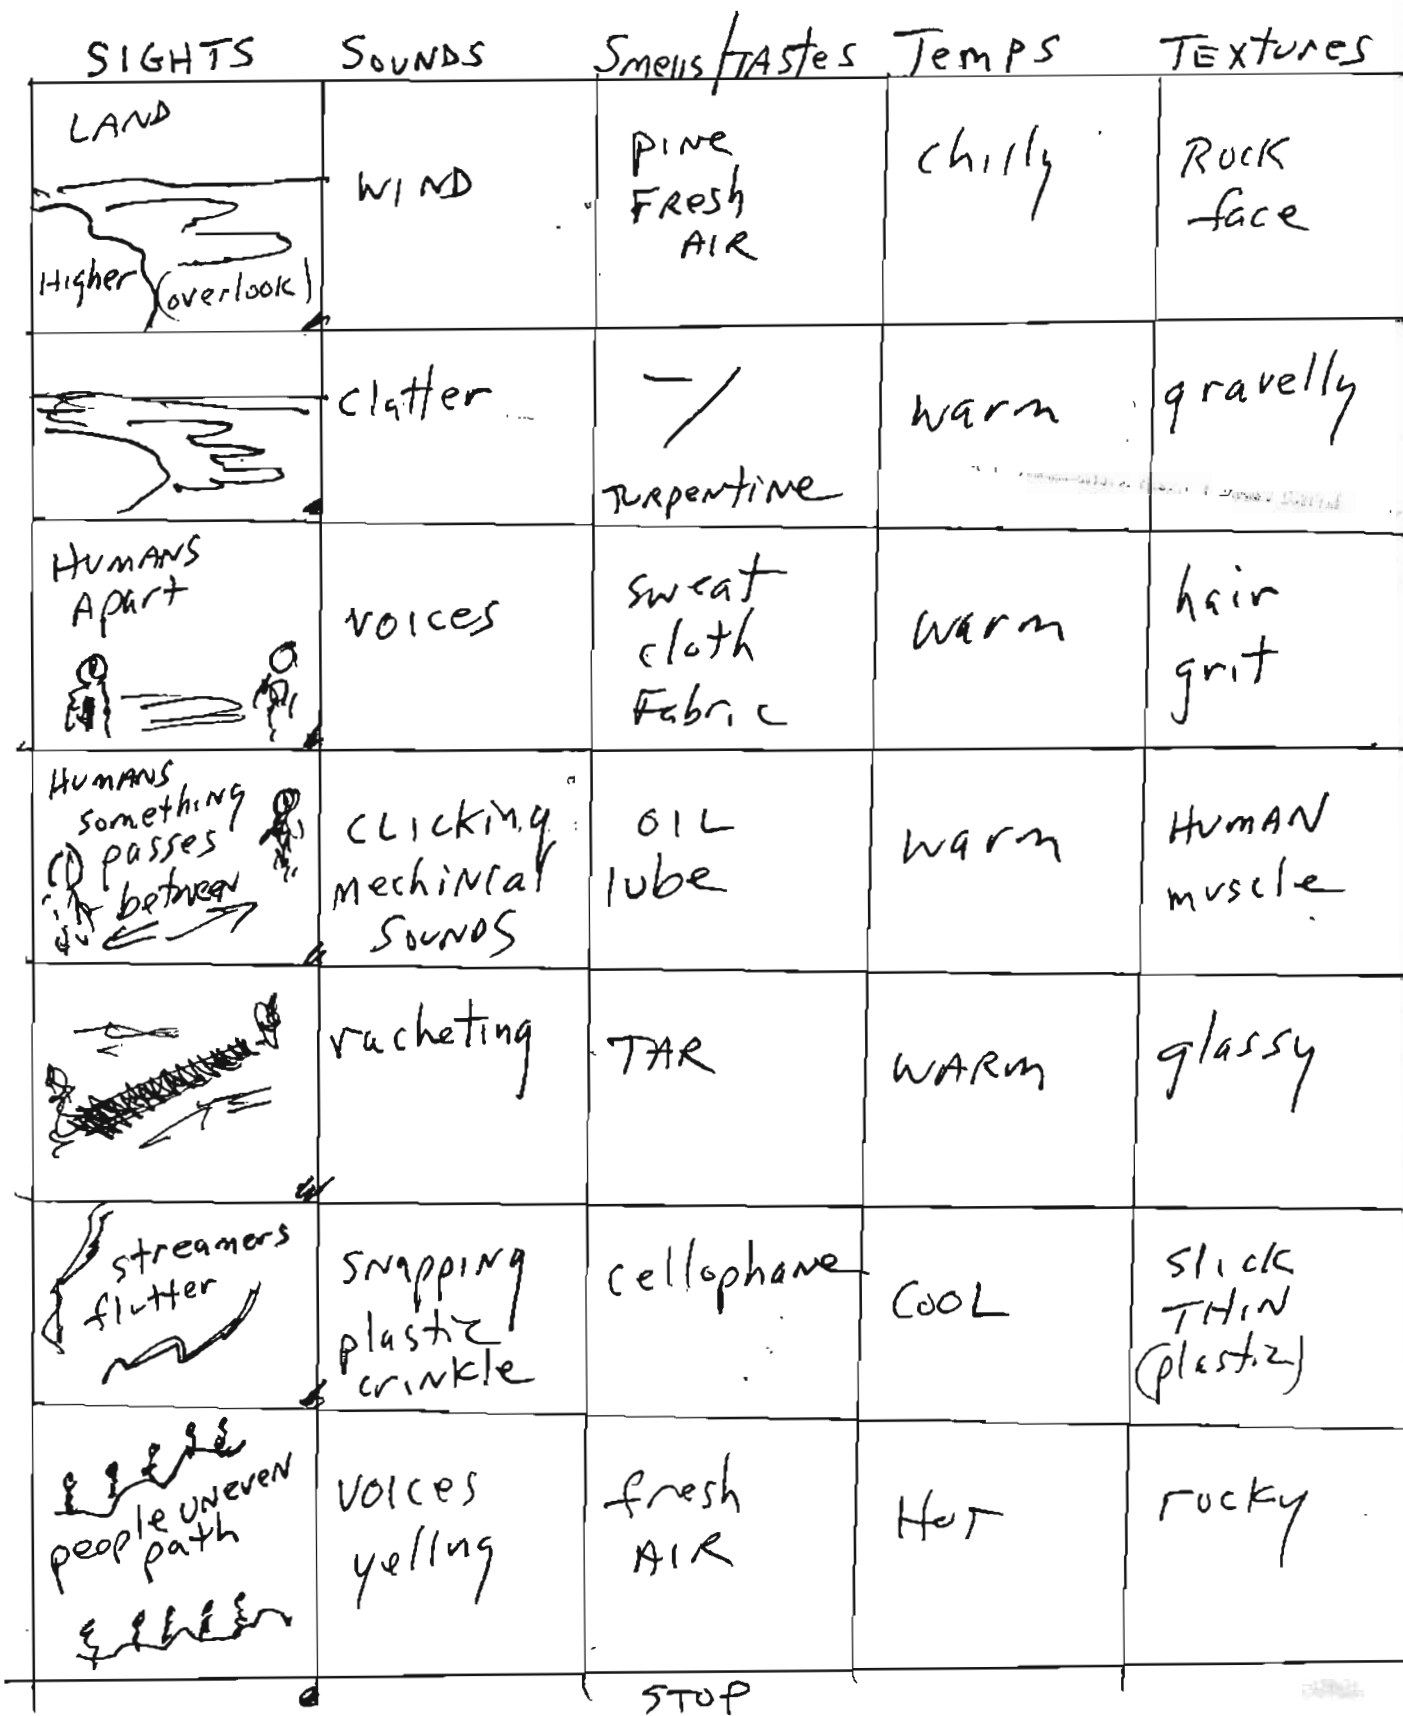 SIGHTS SOUNDS Smells/TAstes Temps TEXTURES
LAND
Higher (overlook)
WIND
PINE
FRESH
AIR
chilly
ROCK
face
clatter
TURPENTINE
warm
gravelly
HUMANS
Apart
VOICES
sweat
cloth
Fabric
warm
hair
grit
HUMANS
something
passes
between
CLICKING
MechiNical
SOUNDS
OIL
lube
warm
HUMAN
muscle
racheting
TAR
WARM
glassy
streamers
flutter
SNAPPING
plastic
crinkle
cellophane
COOL
slick
THIN
(plastic)
people UNEVEN
path
VOICES
yelling
fresh
AIR
HOT
rocky
STOP